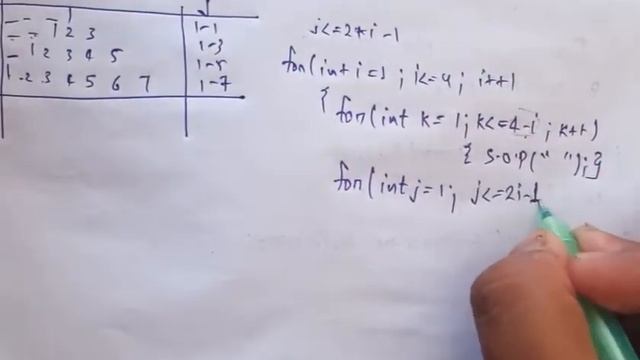 - - - 1
- - 1 2 3
- 1 2 3 4 5
1 2 3 4 5 6 7
j
1-1
1-3
1-5
1-7
j<=2*i-1
for(int i=1; i<=4; i++1
{ for(int k=1; k<=4-i; k++)
{ S.O.P(" ");}
for(int j=1; j<=2i-1